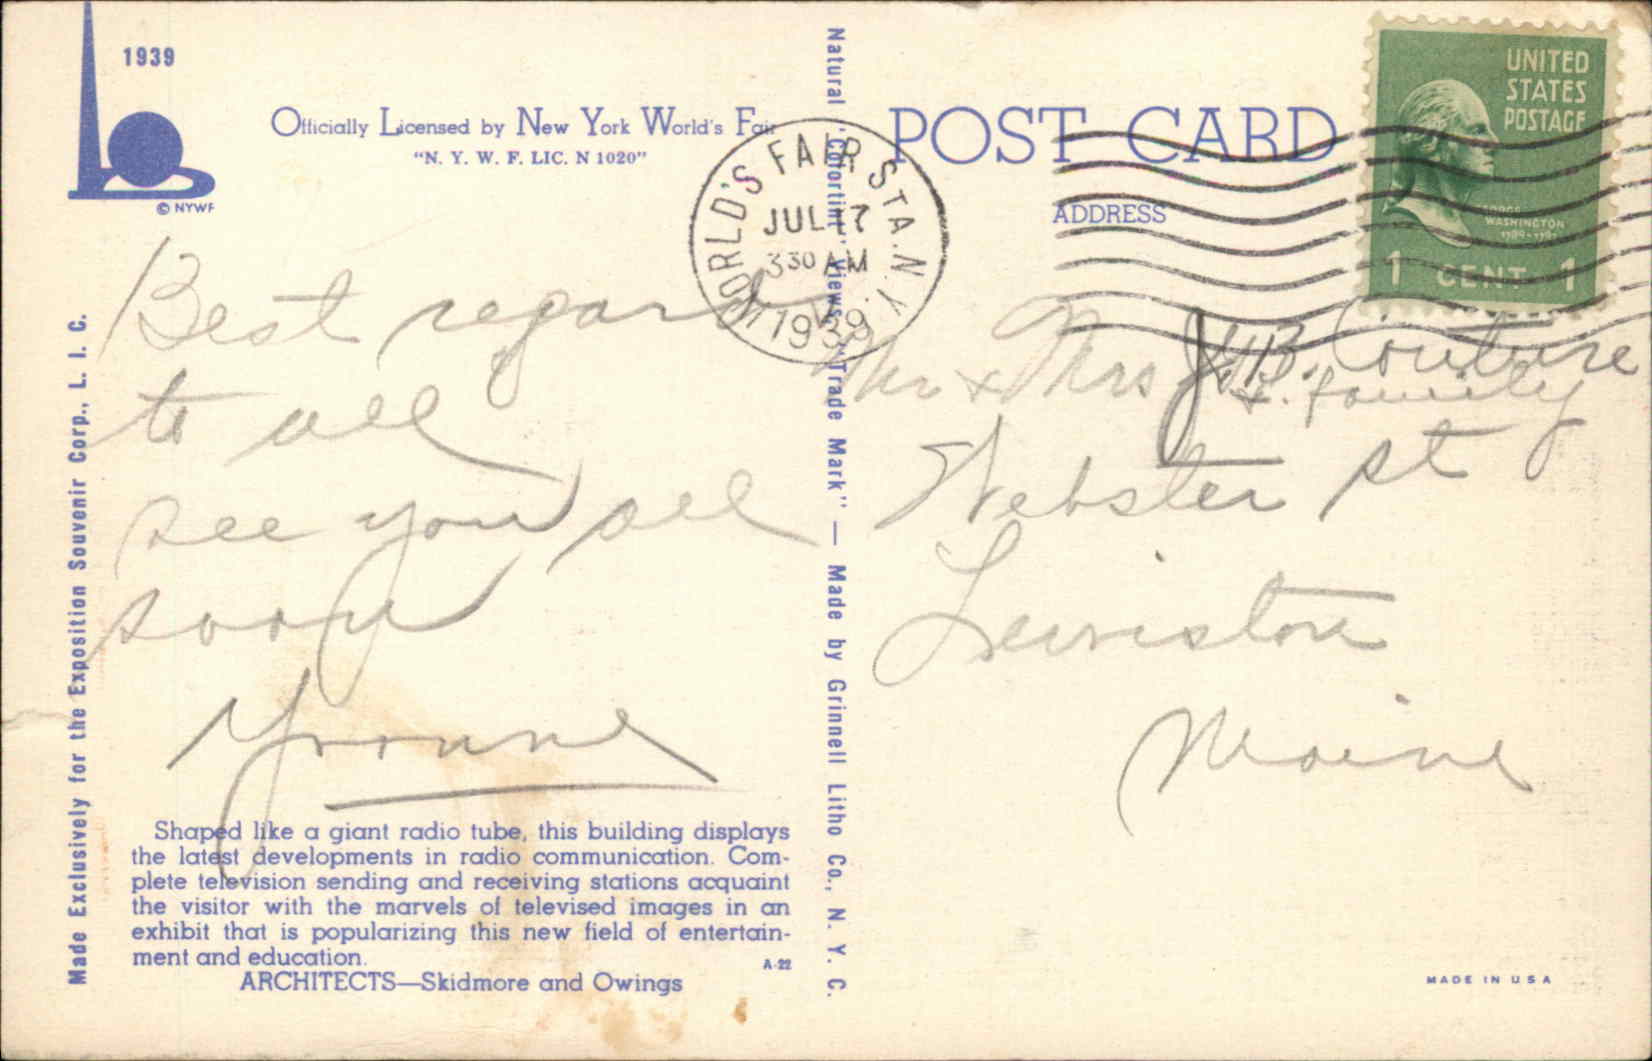 1939
© NYWF
Officially Licensed by New York World's Fair
"N. Y. W. F. LIC. N 1020"
Made Exclusively for the Exposition Souvenir Corp., L. I. C.
Best regards
to all
see you all
soon
Yvonne
Shaped like a giant radio tube, this building displays
the latest developments in radio communication. Com-
plete television sending and receiving stations acquaint
the visitor with the marvels of televised images in an
exhibit that is popularizing this new field of entertain-
ment and education.
A-22
ARCHITECTS—Skidmore and Owings
Natural "Colortint" Views "Trade Mark" — Made by Grinnell Litho Co., N. Y. C.
WORLD'S FAIR STA. N.Y.
JUL 17
3 30 AM
1939
POST CARD
ADDRESS
UNITED
STATES
POSTAGE
GEORGE
WASHINGTON
1789-1797
1 CENT 1
Mr & Mrs J.B. Couture
& family
Webster st
Lewiston
Maine
MADE IN USA